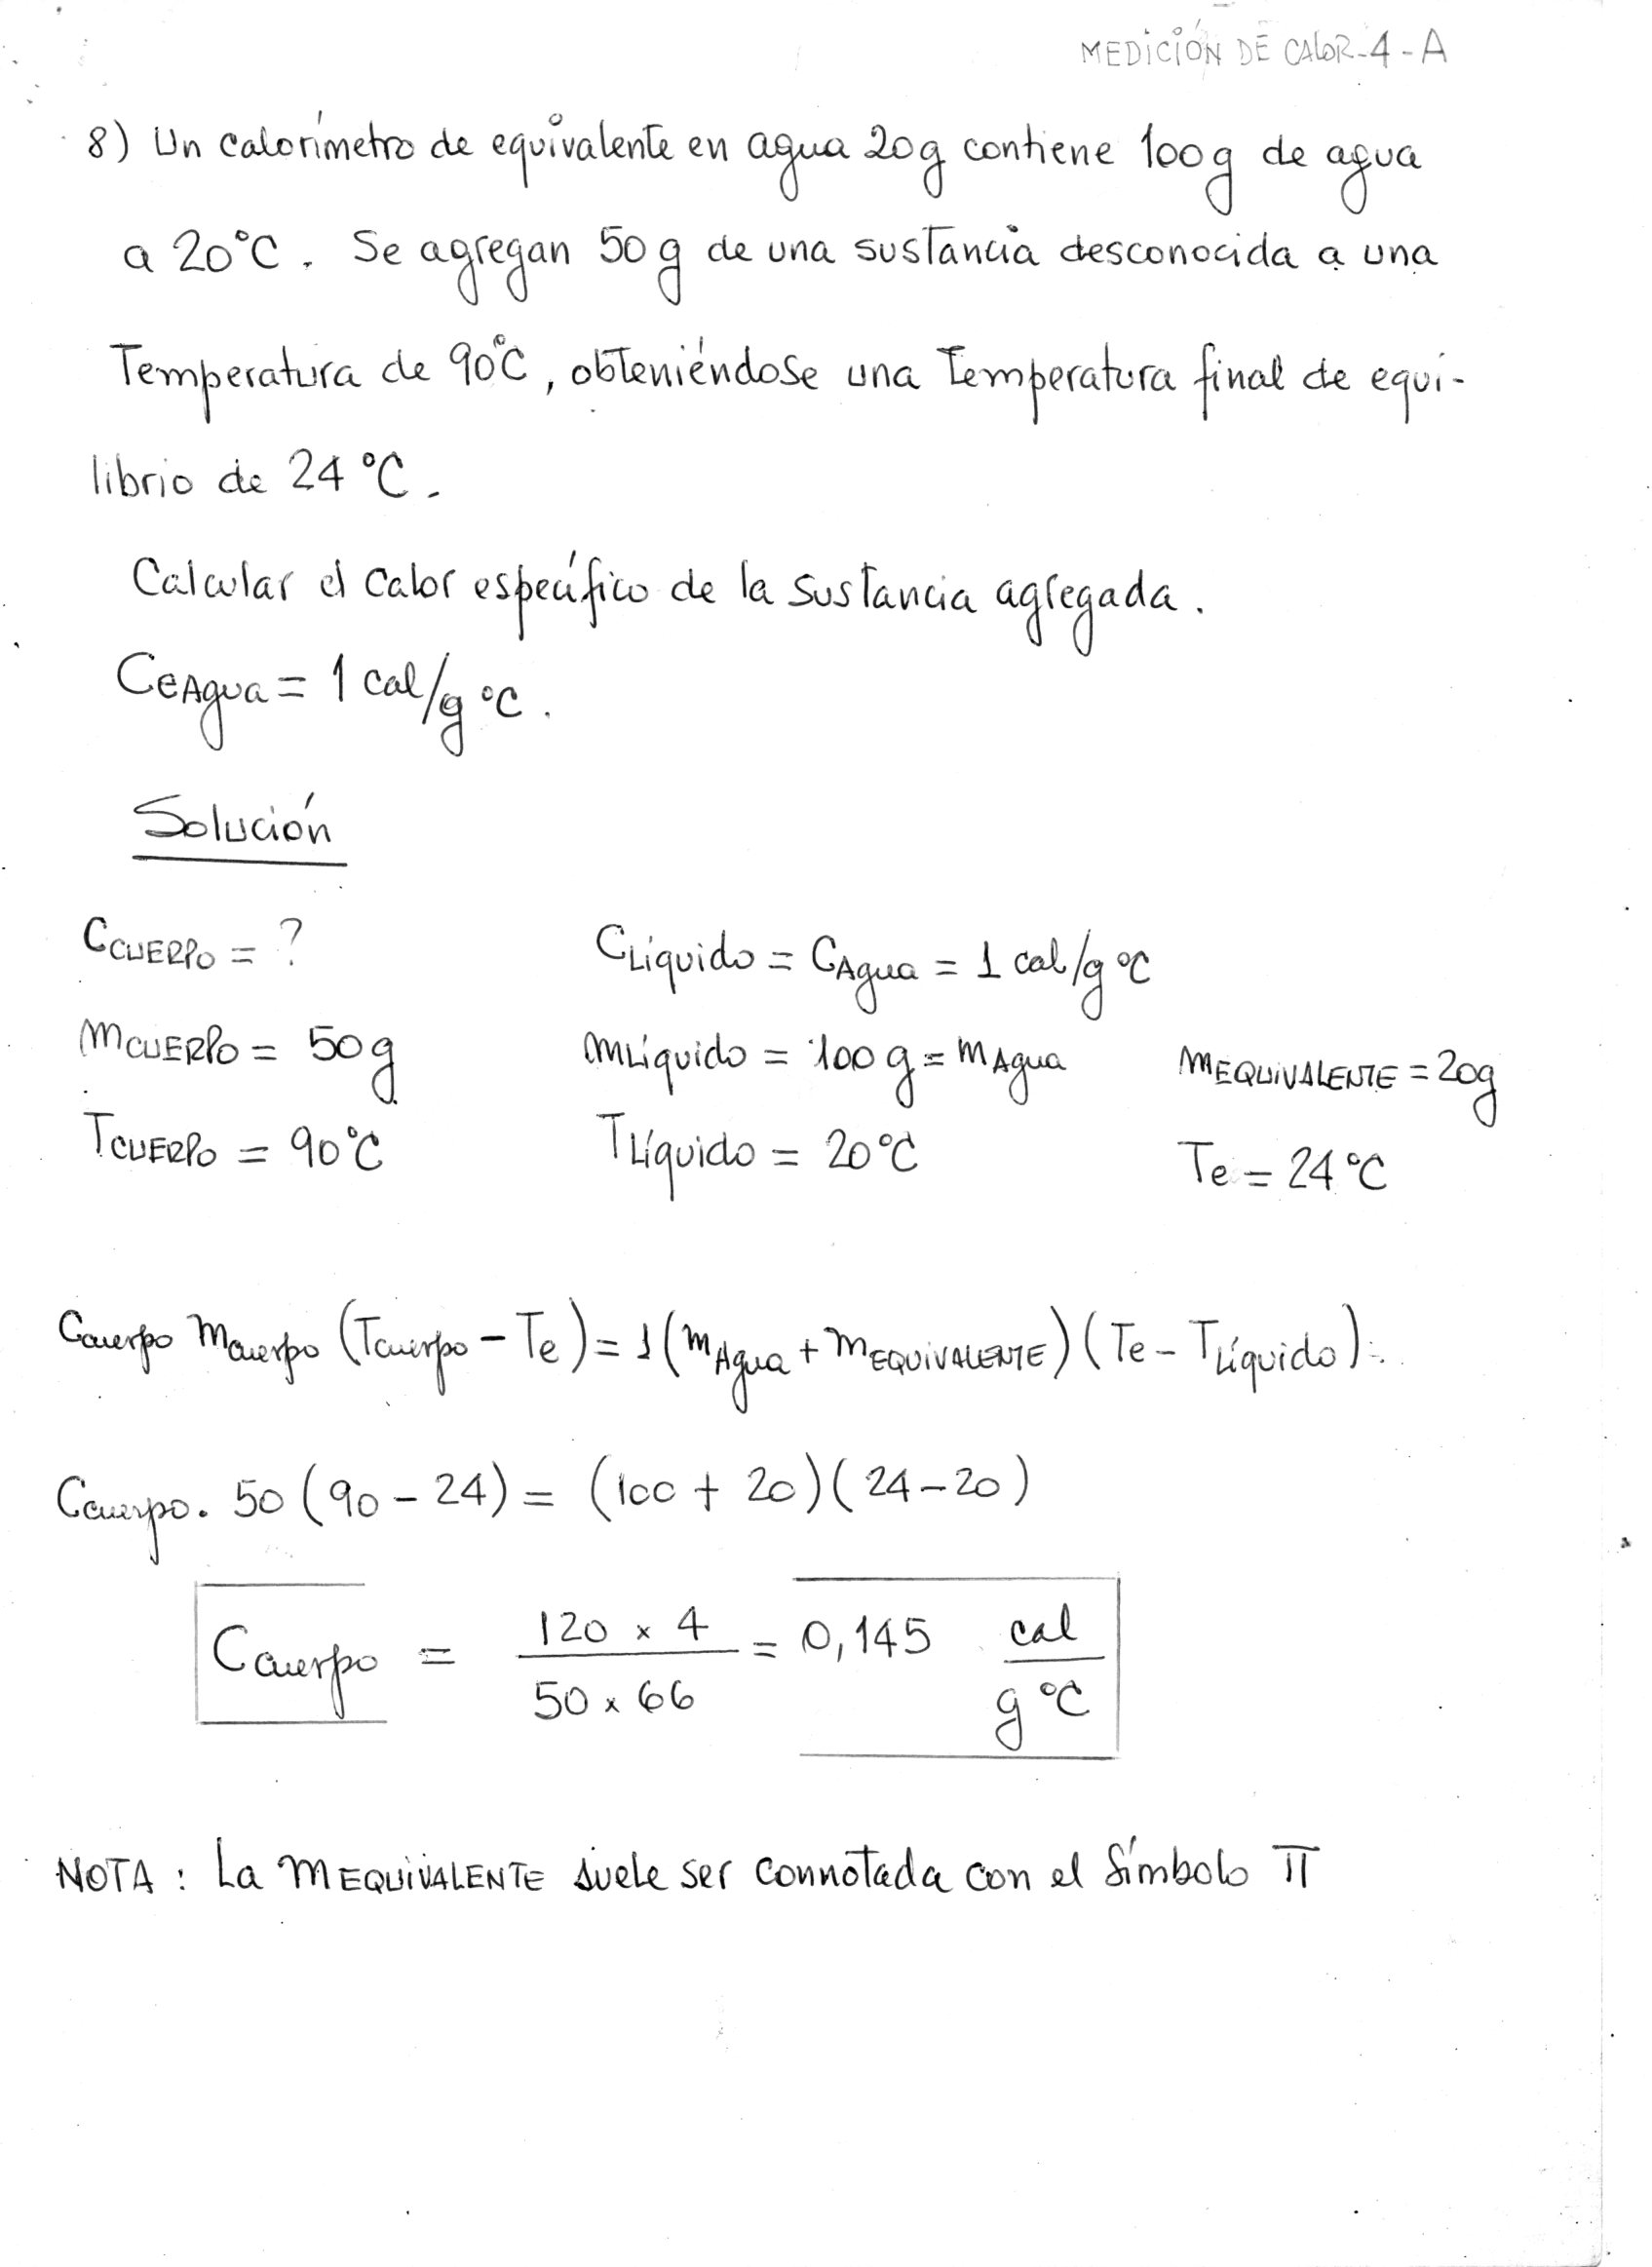 MEDICIÓN DE CALOR-4-A
8) Un calorímetro de equivalente en agua 20g contiene 100g de agua
a 20°C. Se agregan 50g de una sustancia desconocida a una
Temperatura de 90°C, obteniéndose una Temperatura final de equi-
librio de 24°C.
Calcular el calor específico de la sustancia agregada.
CeAgua = 1 cal/g °C.
Solución
CCUERPO = ? CLíquido = CAgua = 1 cal/g °C
MCUERPO = 50g MLíquido = 100g = MAgua MEQUIVALENTE = 20g
TCUERPO = 90°C TLíquido = 20°C Te = 24°C
Ccuerpo Mcuerpo (Tcuerpo - Te) = 1 (MAgua + MEQUIVALENTE) (Te - TLíquido)
Ccuerpo. 50 (90 - 24) = (100 + 20) (24 - 20)
Ccuerpo = 120 x 4 / 50 x 66 = 0,145 cal / g °C
NOTA: La MEQUIVALENTE suele ser connotada con el símbolo π